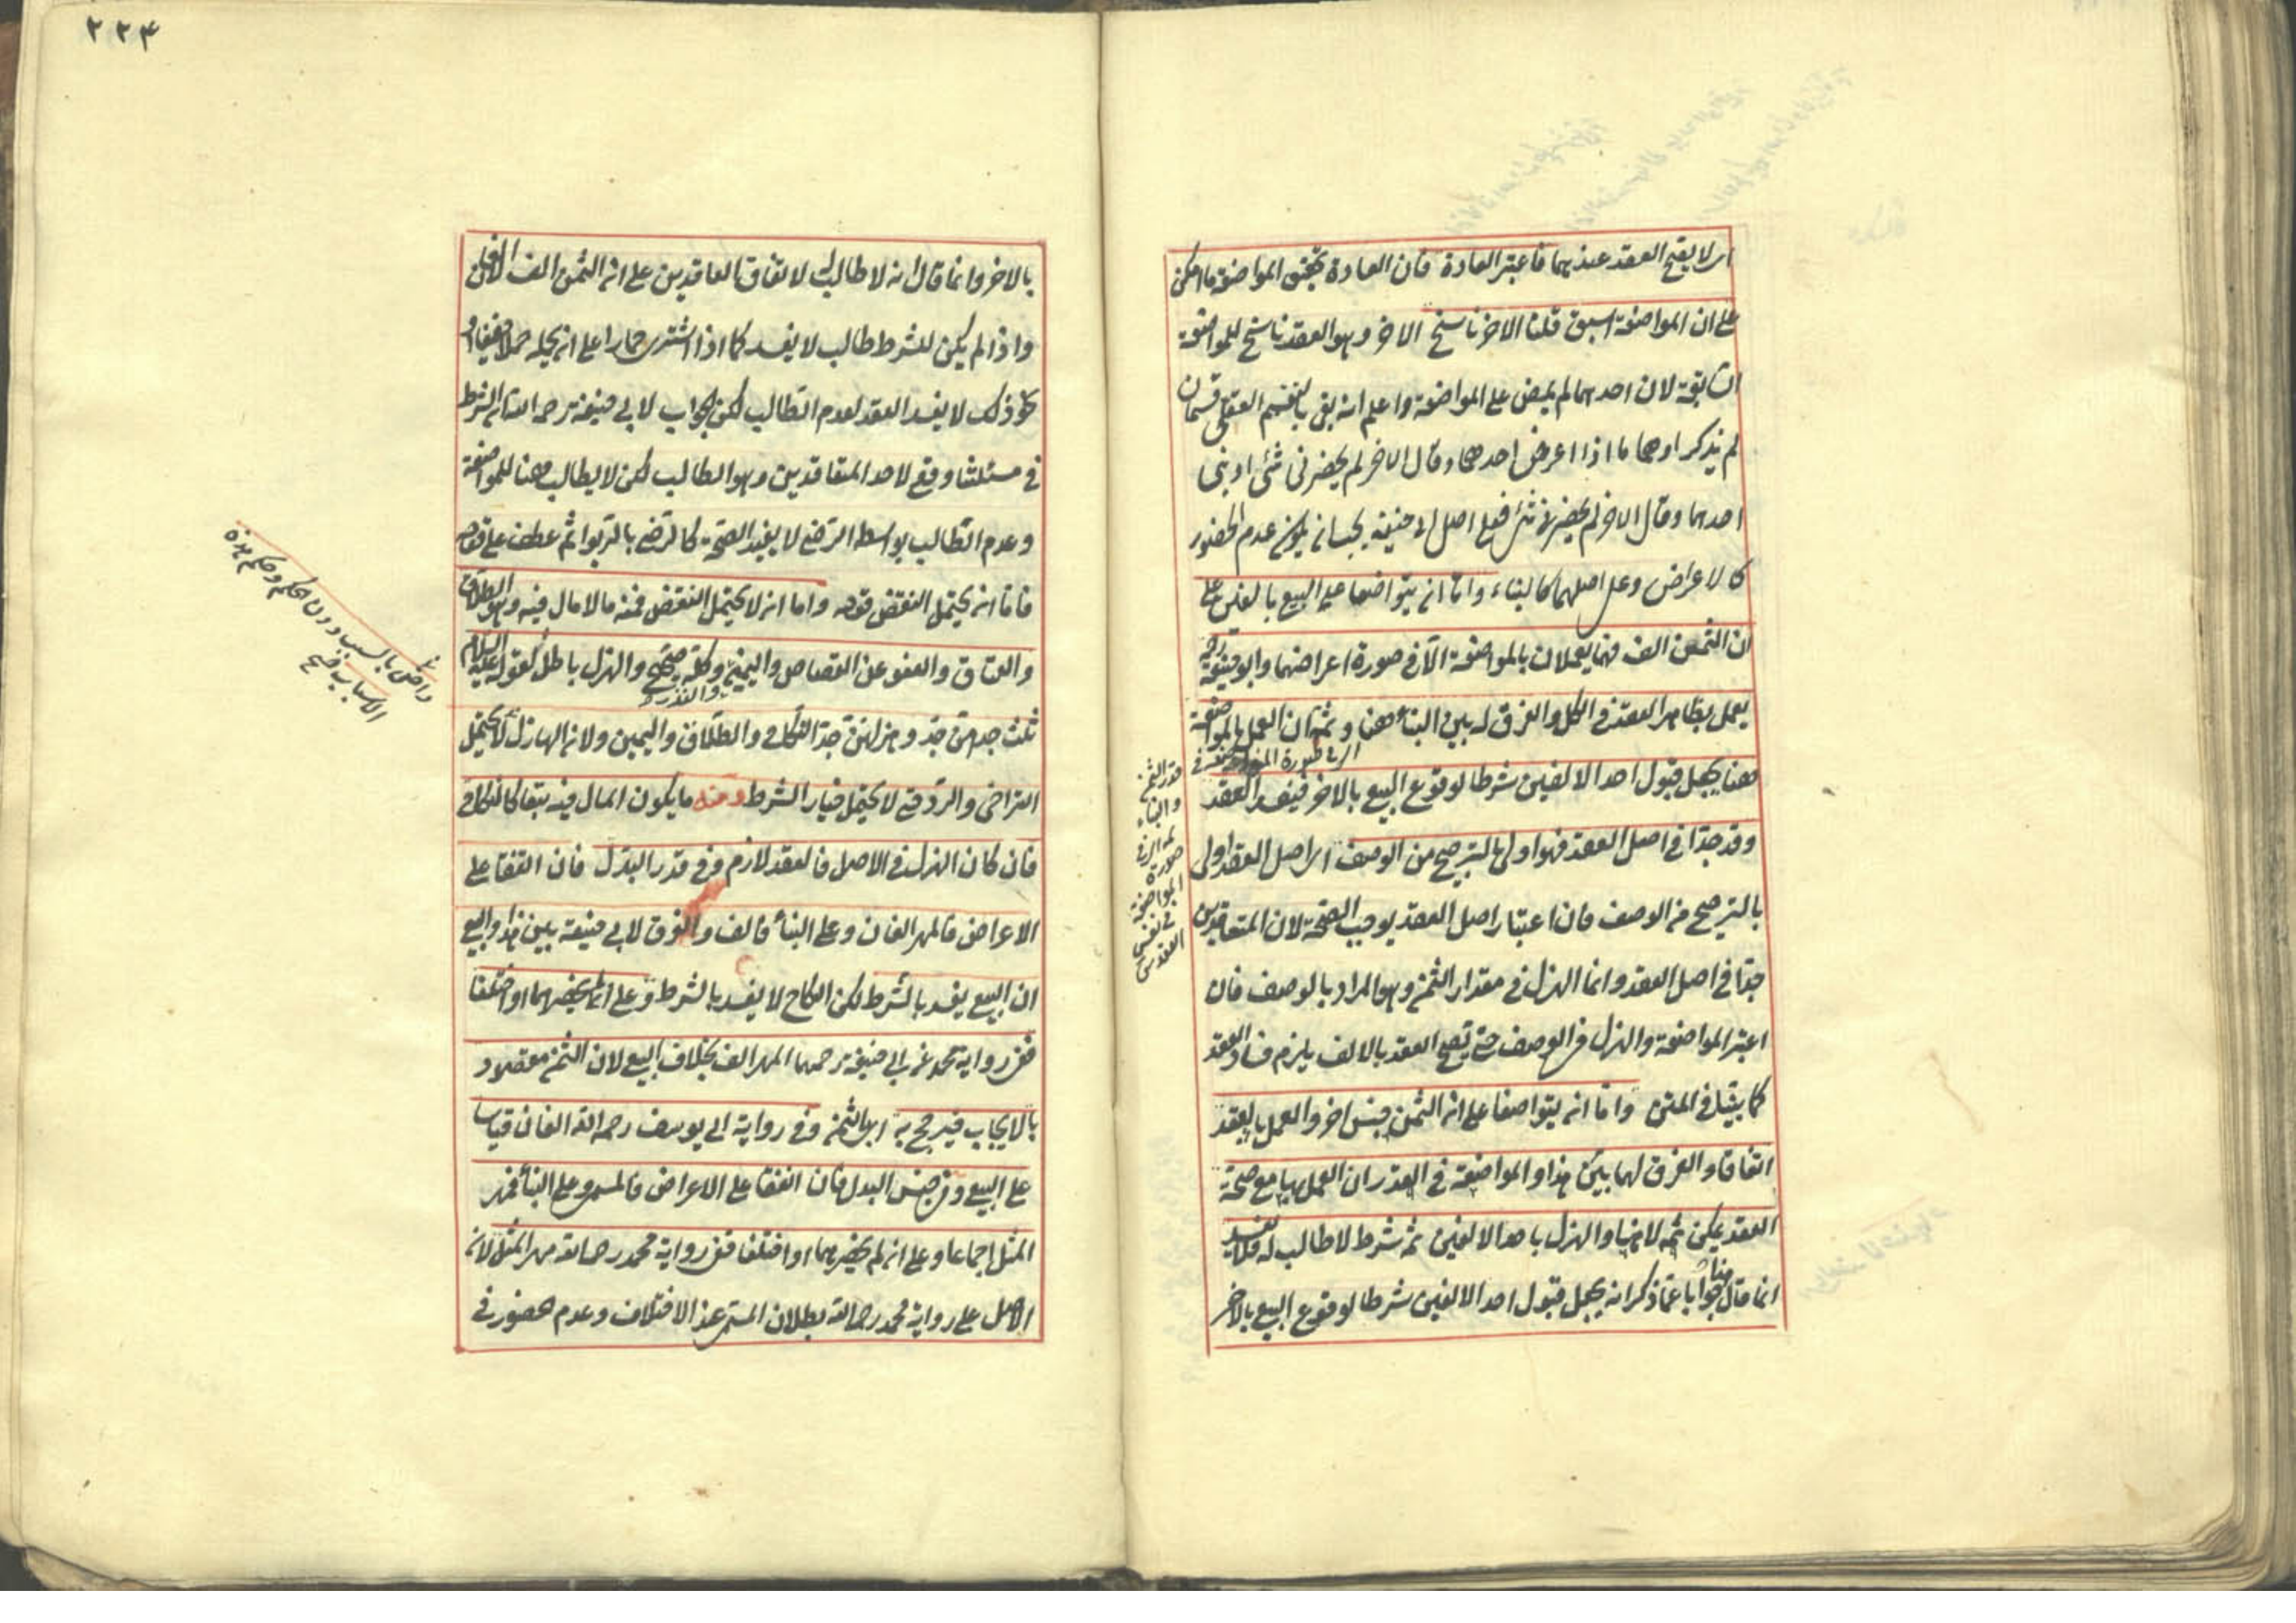 اى لا يصح العقد عندهما فاعتبر العادة فان العادة تحقق المواضعة ما امكن
على ان المواضعة اسبق قلنا الاخر ناسخ الاخر وهو العقد ناسخ للمواضعة
السابقة لان احدهما لم يمض على المواضعة واعلم انه بقى بالتقسيم العقلى قسمان
لم يذكراوهما ما اذا اعرض احدهما وقال الاخر لم يحضرنى شئ او بنى
احدهما وقال الاخر لم يحضرنى شئ فعلى اصل ابى حنيفة يجب ان يكون عدم الحضور
كالاعراض وعلى اصلهما كالبناء واما ان يتواضعا على البيع بالفين على
ان الثمن الف فهما يعملان بالمواضعة الا فى صورة اعراضهما وابو حنيفة
يعمل بظاهر العقد فى الكل والفرق له بين البناء هنا وثمه ان العمل بالمواضعة
هنا يجعل قبول احد الالفين شرطا لوقوع البيع بالاخر فيفسد العقد
وقد جدا فى اصل العقد فهو اولى بالترجيح من الوصف اى اصل العقد اولى
بالترجيح من الوصف فان اعتبار اصل العقد يوجب الصحة لان المتعاقدين
جدا فى اصل العقد وانما الهزل فى مقدار الثمن وهو المراد بالوصف فان
اعتبر المواضعة والهزل فى الوصف حتى يصح العقد بالالف يلزم فساد العقد
كما بينا فى المتن واما ان يتواضعا على ان الثمن جنس اخر والعمل بالعقد
اتفاقا والفرق لهما بين هذا والمواضعة فى القدر ان العمل بها مع صحة
العقد يمكن ثمه لا هنا والهزل باحد الالفين ثمه شرط لا طالب له فلا يفسد
انما قال هنا جوابا عما ذكر انه يجعل قبول احد الالفين شرطا لوقوع البيع بالاخر
قدر الثمن
والبناء
صورة
المواضعة
فى نفس
العقد
٢٢٤
بالاخر وانما قال انه لا طالب له لاتفاق العاقدين على ان الثمن الف لا الفان
واذا لم يكن للشرط طالب لا يفسد كما اذا اشترى حمارا على ان يحمله حملا خفيفا او
نحو ذلك لا يفسد العقد لعدم الطالب لكن الجواب لابى حنيفة رحمه الله ان الشرط
فى مسئلتنا وقع لاحد المتعاقدين وهو الطالب لكن لا يطالب هنا للمواضعة
وعدم الطالب بواسطة الرضى لا يفيد الصحة كالرضى بالربوا ثم عطف على قوله
فاما ان يحتمل النقض قوله واما ان لا يحتمل النقض فمنه ما لا مال فيه وهو الطلاق
والعتاق والعفو عن القصاص واليمين والنذر وكله صحيح والهزل باطل لقوله عليه السلام
ثلث جدهن جد وهزلهن جد النكاح والطلاق واليمين ولان الهازل لا يحتمل
التراخى والرد حتى لا يحتمل خيار الشرط ومنه ما يكون المال فيه تبعا كالنكاح
فان كان الهزل فى الاصل فالعقد لازم وفى قدر البدل فان اتفقا على
الاعراض فالمهر الفان وعلى البناء فالف والفرق لابى حنيفة بين هذا والبيع
ان البيع يفسد بالشرط لكن النكاح لا يفسد بالشرط وعلى ان لم يحضرهما او اختلفا
ففى رواية محمد عن ابى حنيفة رحمهما المهر الف بخلاف البيع لان الثمن مقصود
بالايجاب فيرجح به اى بالثمن وفى رواية ابى يوسف رحمه الله الفان قياسا
على البيع وفى جنس البدل فان اتفقا على الاعراض فالمسمى وعلى البناء فمهر
المثل اجماعا وعلى ان لم يحضرهما او اختلفا ففى رواية محمد رحمه الله مهر المثل لان
الاصل على رواية محمد رحمه الله بطلان المسمى عند الاختلاف وعدم حضور فى
راض بالسبب دون الحكم وحكم هذه
الاسباب